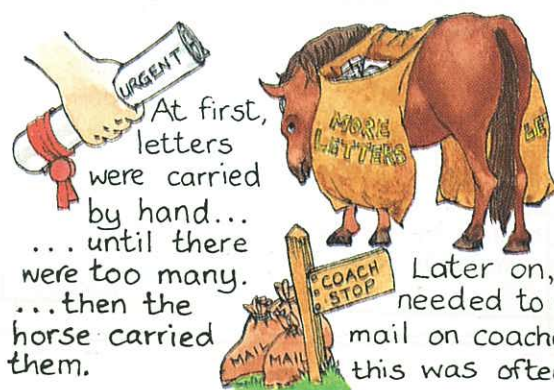 URGENT
At first,
letters
were carried
by hand...
... until there
were too many.
... then the
horse carried
them.
MORE
LETTERS
COACH
STOP
MAIL
MAIL
Later on,
needed to
mail on
this was